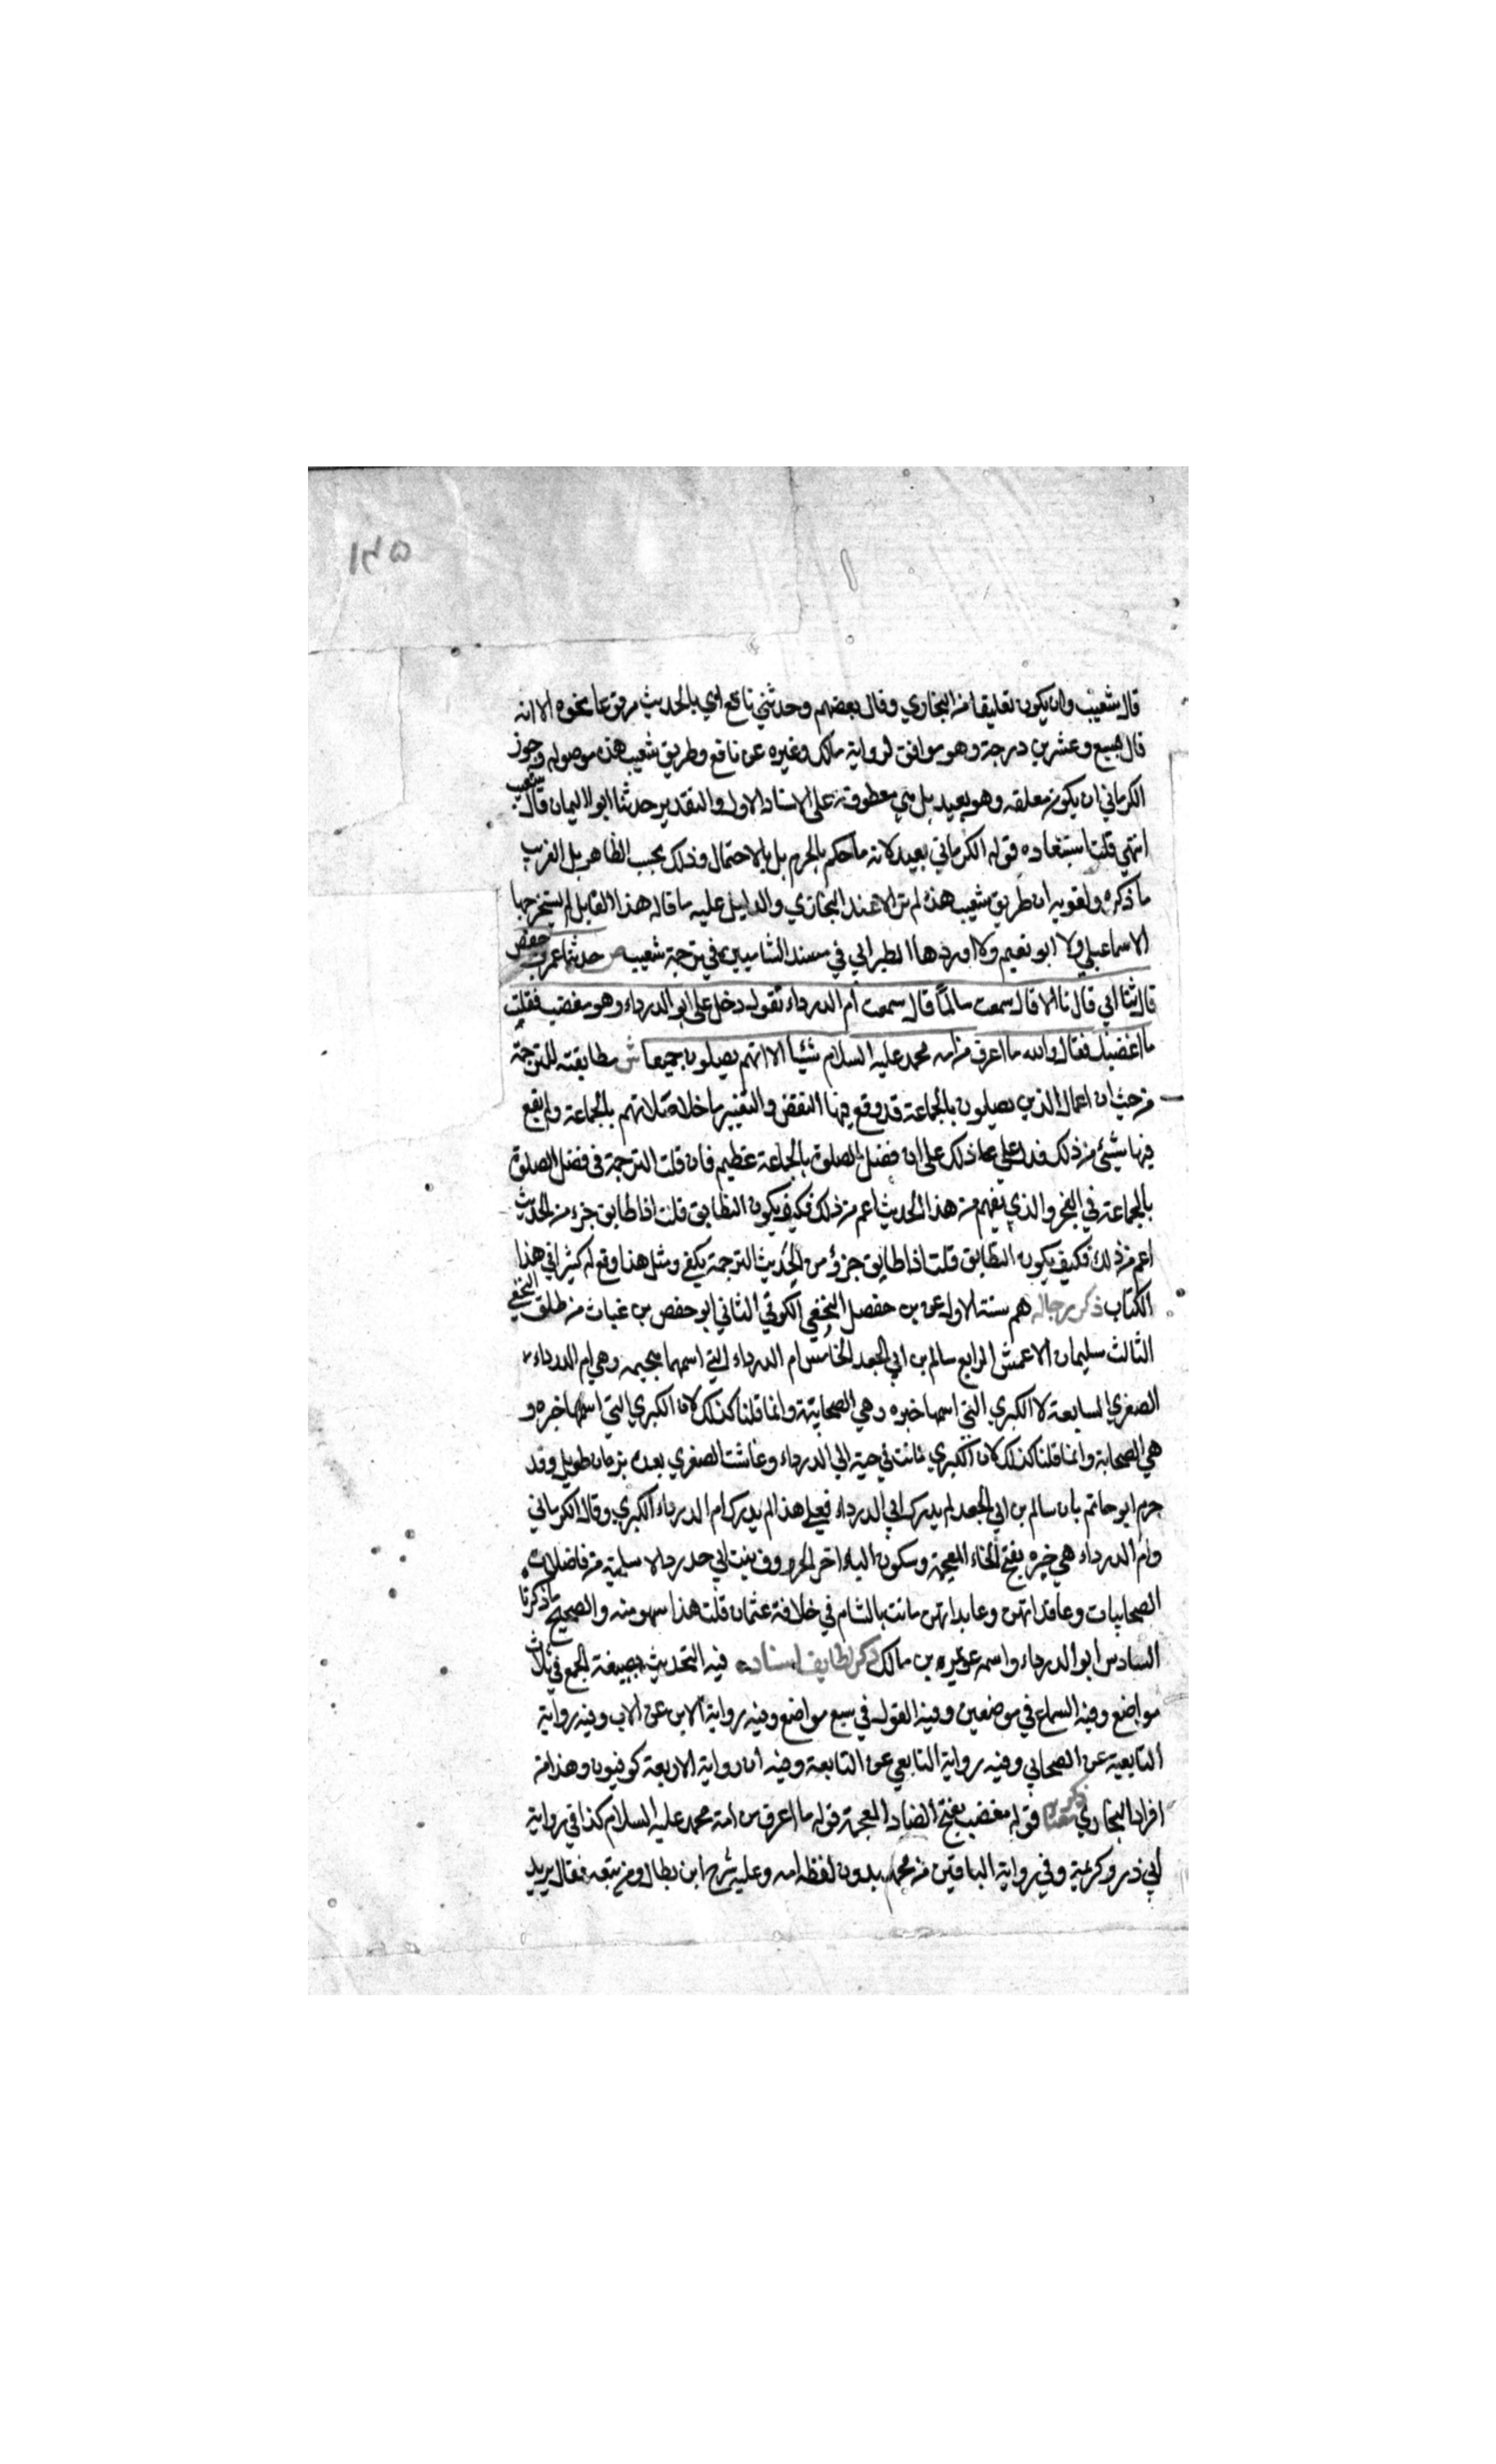 ١٢٥
قال شعيب وان يكون تعليقا من البخاري وقال بعضهم وحدثني نافع اي بالحديث مرفوعا نحوه الا انه
قال بسبع وعشرين درجة وهو موافق لرواية مالك وغيره عن نافع وطريق شعيب هذه موصوله وجوز
الكرماني ان يكون معلقه وهو بعيد بل هي معطوفة على الاسناد الاول والتقدير حدثنا ابو اليمان قال شعيب
انتهي قلت استبعاده قول الكرماني بعيد لانه ما حكم بالجزم بل بالاحتمال وذلك بحسب الظاهر بل القريب
ما ذكره ولقويه ان طريق شعيب هذه لم تر الا عند البخاري والدليل عليه ما قاله هذا القايل لم يستخرجها
الاسماعيلي ولا ابو نعيم ولا اوردها الطبراني في مسند الشاميين في ترجمة شعيب ص حدثنا عمر بن حفص
قال ثنا ابي قال نا الا قال سمعت سالماً قال سمعت ام الدرداء تقول دخل علي ابو الدرداء وهو مغضب فقلت
ما اغضبك فقال والله ما اعرف من امه محمد عليه السلام شيئا الا انهم يصلون جميعا ش مطابقته للترجمة
من حيث ان اعمال الذين يصلون بالجماعة قد وقع فيها النقض والتغيير ما خلا صلاتهم بالجماعة ولم يقع
فيها شيئ من ذلك فدل علي ذلك على ان فضل الصلوة بالجماعة عظيم فان قلت الترجمة في فضل الصلوة
بالجماعة في الفجر والذي يفهم من هذا الحديث اعم من ذلك فكيف يكون التطابق قلت اذا طابق جزء من الحديث
اعم من ذلك فكيف يكون التطابق قلت اذا طابق جزؤ من الحديث الترجمة يكفي ومثل هذا وقع له كثيرا في هذا
الكتاب ذكر رجاله هم ستة الاول عمر بن حفص النخعي الكوفي الثاني ابو حفص بن غياث بن طلق النخعي
الثالث سليمان الاعمش الرابع سالم بن ابي الجعد الخامس ام الدرداء التي اسمها هجيمه وهي ام الدرداء
الصغري التابعة لا الكبري التي اسمها خيره وهي الصحابية وانما قلنا كذلك لان الكبري التي اسمها خيره و
هي الصحابة وانما قلنا كذلك لان الكبري ماتت في حية ابي الدرداء وعاشت الصغري بعده بزمان طويل وقد
جزم ابو حاتم بان سالم بن ابي الجعد لم يدرك ابي الدرداء فعلي هذا لم يدرك ام الدرداء الكبري وقال الكرماني
وام الدرداء هي خيره بفتح الخاء المعجمة وسكون الياء اخر الحروف بنت ابي حدرد الاسلمية من فاضلات
الصحابيات وعاقلاتهن وعابداتهن ماتت بالشام في خلافة عثمان قلت هذا سهو منه والصحيح ما ذكرنا
السادس ابو الدرداء واسمه عويمر بن مالك ذكر لطايف اسناده فيه التحديث بصيغة الجمع في ثلاث
مواضع وفيه السماع في موضعين وفيه القول في سبع مواضع وفيه رواية الابن عن الاب وفيه رواية
التابعية عن الصحابي وفيه رواية التابعي عن التابعة وفيه ان رواية الاربعة كوفيون وهذا من
افراد البخاري ذكر معناه قوله مغضب بفتح الضاد المعجمة قوله ما اعرف من امة محمد عليه السلام كذا في رواية
ابي ذر وكريمة وفي رواية الباقين من محمد بدون لفظه امه وعليه شرح ابن بطال ومن تبعه فقال يريد